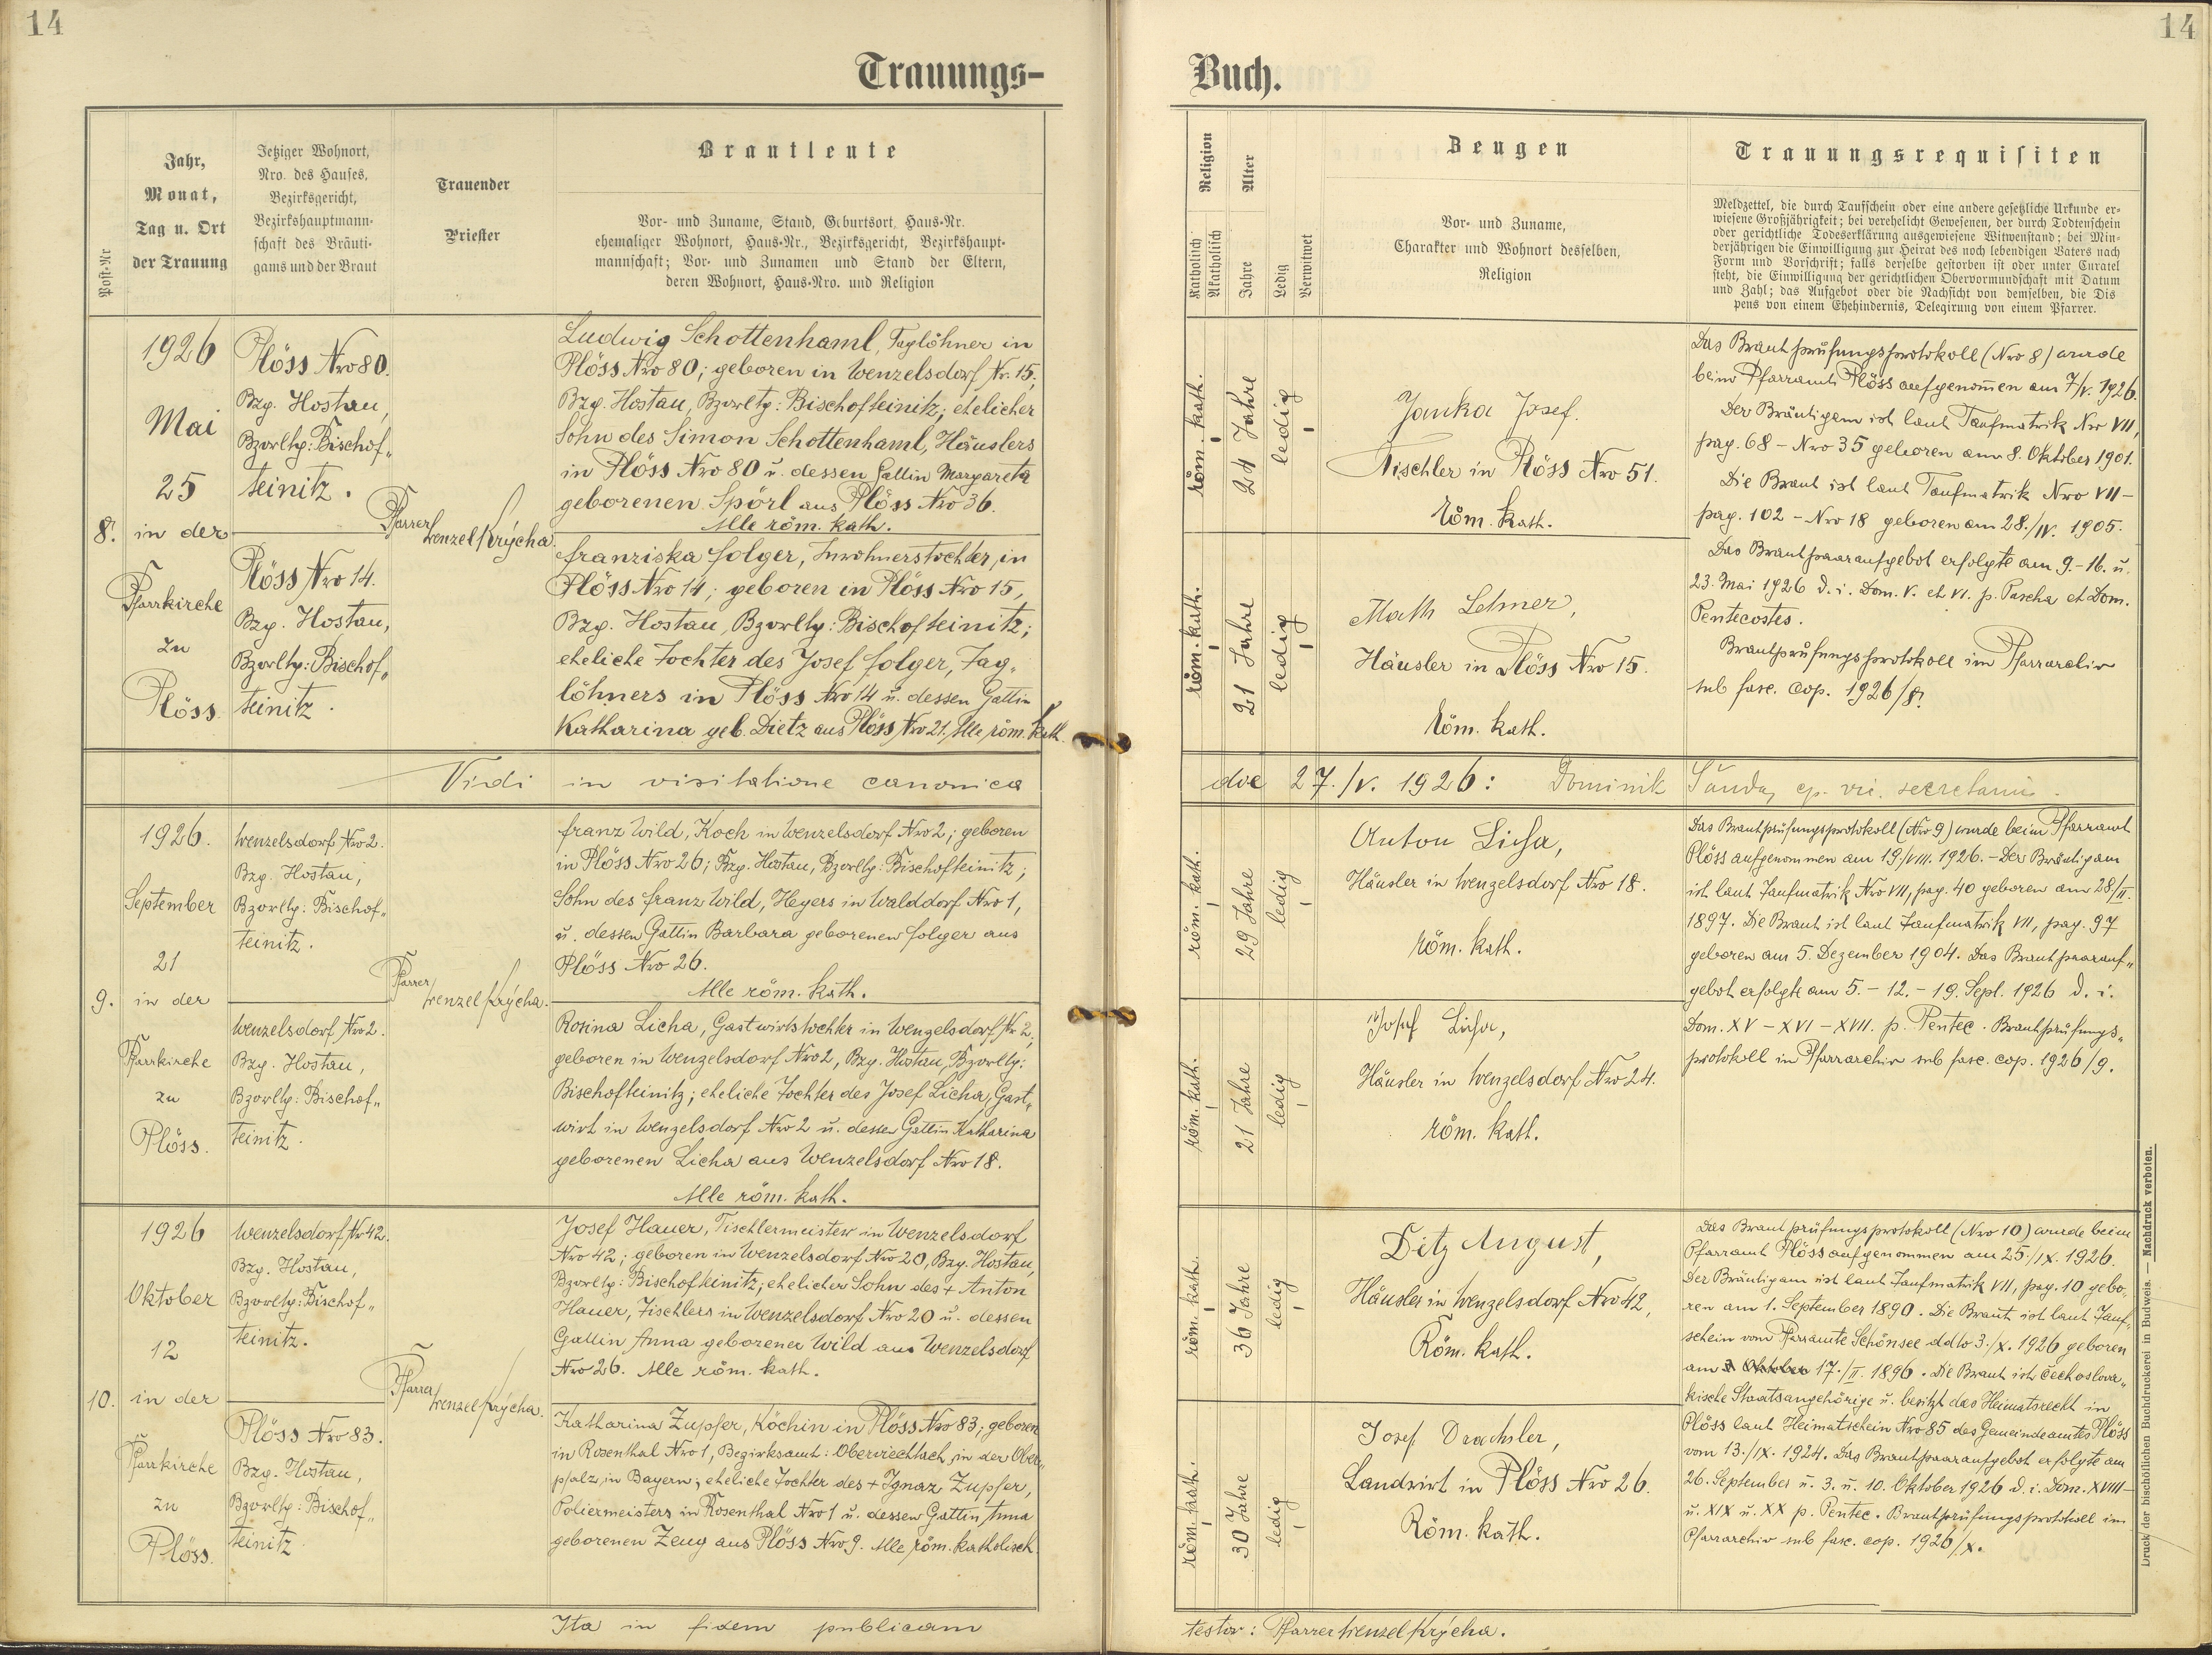 14
14
Trauungs-
Buch.
Post-Nr
Jahr,
Monat,
Tag u. Ort
der Trauung
Jetziger Wohnort,
Nro. des Hauses,
Bezirksgericht,
Bezirkshauptmann-
schaft des Bräuti-
gams und der Braut
Trauender
Priester
Brautleute
Vor- und Zuname, Stand, Geburtsort, Haus-Nr.
ehemaliger Wohnort, Haus-Nr., Bezirksgericht, Bezirkshaupt-
mannschaft; Vor- und Zunamen und Stand der Eltern,
deren Wohnort, Haus-Nro. und Religion
Religion
Katholisch
Akatholisch
Alter
Jahre
Ledig
Verwitwet
Zeugen
Vor- und Zuname,
Charakter und Wohnort desselben,
Religion
Trauungsrequisiten
Meldzettel, die durch Taufschein oder eine andere gesetzliche Urkunde er-
wiesene Großjährigkeit; bei verehelicht Gewesenen, der durch Todtenschein
oder gerichtliche Todeserklärung ausgewiesene Witwenstand; bei Min-
derjährigen die Einwilligung zur Heirat des noch lebendigen Vaters nach
Form und Vorschrift; falls derselbe gestorben ist oder unter Curatel
steht, die Einwilligung der gerichtlichen Obervormundschaft mit Datum
und Zahl; das Aufgebot oder die Nachsicht von demselben, die Dis
pens von einem Ehehindernis, Delegirung von einem Pfarrer.
8.
1926
Mai
25
in der
Pfarrkirche
zu
Plöss.
Plöss Nro 80.
Bzg. Hostau,
Bzvrltg: Bischof„
teinitz.
Plöss Nro 14.
Bzg. Hostau,
Bzvrltg: Bischof„
teinitz.
Pfarrer
Wenzel Krýcha.
Ludwig Schottenhaml, Taglöhner in
Plöss Nro 80; geboren in Wenzelsdorf Nr. 15,
Bzg. Hostau, Bzvrltg: Bischofteinitz; ehelicher
Sohn des Simon Schottenhaml, Häuslers
in Plöss Nro 80 u. dessen Gattin Margareta
geborenen Spörl aus Plöss Nro 36.
Alle röm. kath.
Franziska Folger, Inwohnerstochter, in
Plöss Nro 14; geboren in Plöss Nro 15,
Bzg. Hostau, Bzvrltg: Bischofteinitz;
eheliche Tochter des Josef Folger, Tag„
löhners in Plöss Nro 14 u. dessen Gattin
Katharina geb. Dietz aus Plöss Nro 21. Alle röm. kath.
röm. kath.
24 Jahre
ledig
röm. kath.
21 Jahre
ledig
Janka Josef.
Tischler in Plöss Nro 51.
Röm. kath.
Math Lehner,
Häusler in Plöss Nro 15.
Röm. kath.
Das Brautprüfungsprotokoll (Nro 8) wurde
beim Pfarramte Plöss aufgenommen am 7/V. 1926.
Der Bräutigam ist laut Taufmatrik Nro VII,
pag. 68 - Nro 35 geboren am 8. Oktober 1901.
Die Braut ist laut Taufmatrik Nro VII -
pag. 102 - Nro 18 geboren am 28./IV. 1905.
Das Brautpaaraufgebot erfolgte am 9.-16. u.
23. Mai 1926 d. i. Dom. V. et VI. p. Pascha et Dom.
Pentecostes.
Brautprüfungsprotokoll im Pfarrarchiv
sub fasc. cop. 1926/8.
Vidi in visitatione canonica
die 27./V. 1926: Dominik
9.
1926.
September
21
in der
Pfarrkirche
zu
Plöss.
Wenzelsdorf Nro 2.
Bzg. Hostau,
Bzvrltg: Bischof„
teinitz.
Wenzelsdorf Nro 2.
Bzg. Hostau,
Bzvrltg: Bischof„
teinitz.
Pfarrer
Wenzel Krýcha.
Franz Wild, Koch in Wenzelsdorf Nro 2; geboren
in Plöss Nro 26; Bzg. Hostau, Bzvrltg: Bischofteinitz;
Sohn des Franz Wild, Hegers in Walddorf Nro 1,
u. dessen Gattin Barbara geborenen Folger aus
Plöss Nro 26.
Alle röm. kath.
Rosina Licha, Gastwirtstochter in Wenzelsdorf Nr. 2;
geboren in Wenzelsdorf Nro 2, Bzg. Hostau, Bzvrltg:
Bischofteinitz; eheliche Tochter des Josef Licha, Gast„
wirt in Wenzelsdorf Nro 2 u. dessen Gattin Katharina
geborenen Licha aus Wenzelsdorf Nro 18.
Alle röm. kath.
röm. kath.
29 Jahre
ledig
röm. kath.
21 Jahre
ledig
Anton Licha,
Häusler in Wenzelsdorf Nro 18.
röm. kath.
Josef Licha,
Häusler in Wenzelsdorf Nro 24.
röm. kath.
Das Brautprüfungsprotokoll (Nro 9) wurde beim Pfarramt
Plöss aufgenommen am 19./VIII. 1926. - Der Bräutigam
ist laut Taufmatrik Nro VII, pag. 40 geboren am 28/II.
1897. Die Braut ist laut Taufmatrik VII, pag. 97
geboren am 5. Dezember 1904. Das Brautpaarauf„
gebot erfolgte am 5. - 12. - 19. Sept. 1926 d. i.
Dom. XV - XVI - XVII. p. Pentec. Brautprüfungs„
protokoll in Pfarrarchiv sub fasc. cop. 1926/9.
10.
1926
Oktober
12
in der
Pfarrkirche
zu
Plöss.
Wenzelsdorf Nr 42.
Bzg. Hostau,
Bzvrltg: Bischof„
teinitz.
Plöss Nro 83.
Bzg. Hostau,
Bzvrltg: Bischof„
teinitz
Pfarrer
Wenzel Krýcha.
Josef Hauer, Tischlermeister in Wenzelsdorf
Nro 42; geboren in Wenzelsdorf Nro 20, Bzg. Hostau,
Bzvrltg: Bischofteinitz; ehelicher Sohn des + Anton
Hauer, Tischlers in Wenzelsdorf Nro 20 u. dessen
Gattin Anna geborener Wild aus Wenzelsdorf
Nro 26. Alle röm. kath.
Katharina Zupfer, Köchin in Plöss Nro 83; geboren
in Rosenthal Nro 1, Bezirksamt: Oberviechtach, in der Ober„
pfalz, in Bayern; eheliche Tochter des + Ignaz Zupfer,
Poliermeisters in Rosenthal Nro 1 u. dessen Gattin Anna
geborenen Zeug aus Plöss Nro 9. Alle röm. katholisch.
röm. kath.
36 Jahre
ledig
röm. kath.
30 Jahre
ledig
Ditz August,
Häusler in Wenzelsdorf Nro 42,
Röm. kath.
Josef Drachsler,
Landwirt in Plöss Nro 26.
Röm. kath.
Das Brautprüfungsprotokoll (Nro 10) wurde beim
Pfarramt Plöss aufgenommen am 25./IX. 1926.
Der Bräutigam ist laut Taufmatrik VII, pag. 10 gebo„
ren am 1. September 1890. Die Braut ist laut Tauf„
schein vom Pfarramte Schönsee ddto 3./X. 1926 geboren
am 3 Oktober 17./II. 1896. Die Braut ist čechoslova„
kische Staatsangehörige u. besitzt das Heimatsrecht in
Plöss laut Heimatschein Nro 85 des Gemeindeamtes Plöss
vom 13./IX. 1924. Das Brautpaaraufgebot erfolgte am
26. September u. 3. u. 10. Oktober 1926 d. i. Dom. XVIII -
u. XIX u. XX p. Pentec. Brautprüfungsprotokoll im
Pfarrarchiv sub fasc. cop. 1926/X.
Druck der bischöflichen Buchdruckerei in Budweis. — Nachdruck verboten.
Ita in fidem publicam
testor: Pfarrer Wenzel Krýcha.